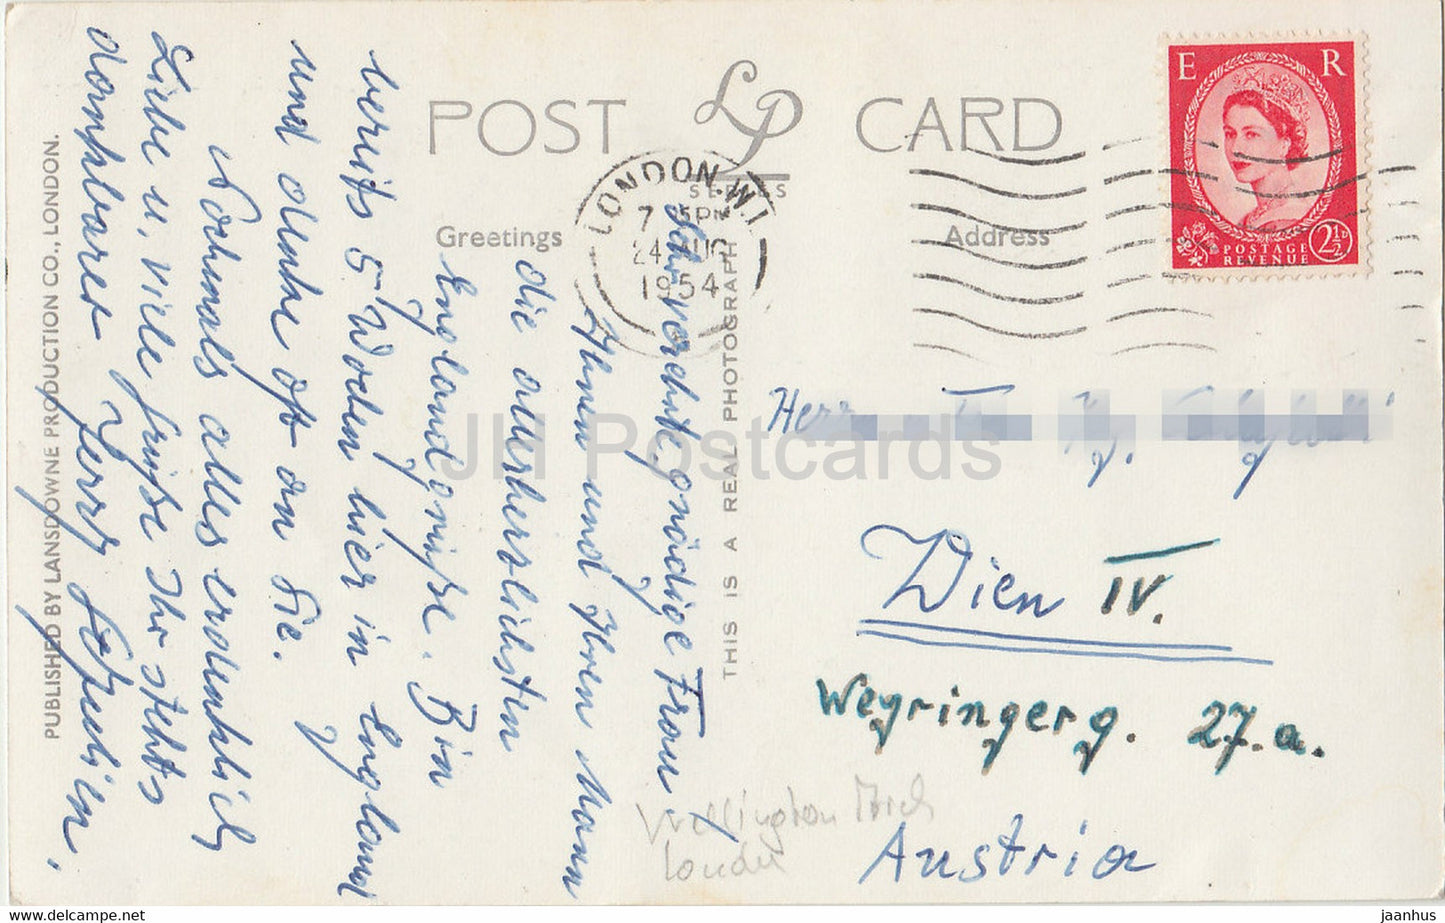 POST CARD
LP
SERIES
Greetings
Address
LONDON. W.1
7 15 PM
24 AUG
1954
E R
POSTAGE
REVENUE
2½D
Sehr verehrte, gnädige Frau!
Ihnen und Ihren Mann
die allerherzlichsten
Englandgrüße. Bin
bereits 5 Wochen hier in England
und denke oft an Sie.
Nochmals alles erdenklich
Liebe u. viele Grüße Ihr stets
dankbarer Jerry
Herr
Wien IV.
Weyringerg. 27.a.
Austria
Wellington
London
THIS IS A REAL PHOTOGRAPH
PUBLISHED BY LANSDOWNE PRODUCTION CO., LONDON.
JH Postcards
www.delcampe.net
jaanhus